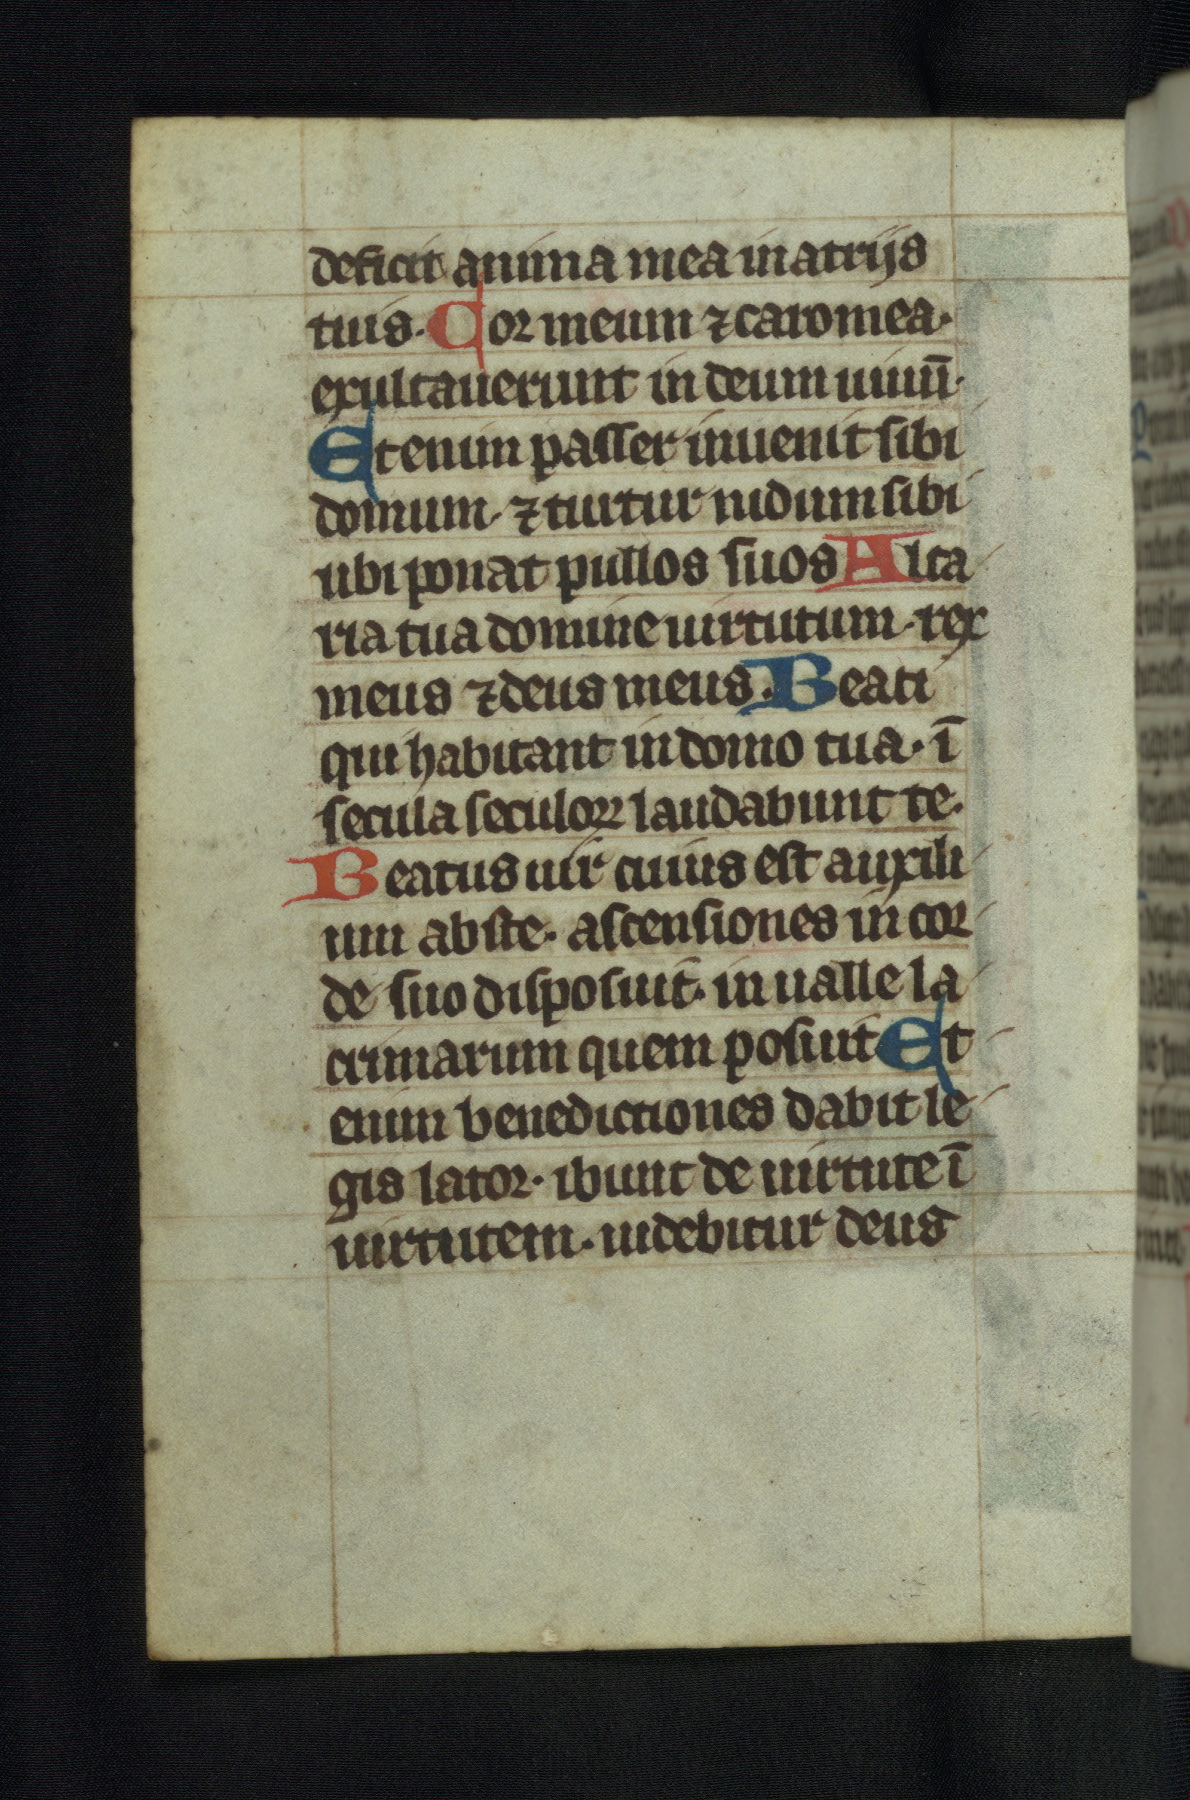 deficit anima mea in atrijs
tuis· Cor meum ⁊ caro mea·
exultauerunt in deum uiuū·
Etenim passer inuenit sibi
domum· ⁊ turtur nidum sibi
ubi ponat pullos suos Alta
ria tua domine uirtutum· rex
meus ⁊ deus meus· Beati
qui habitant in domo tua· ī
secula seculoꝝ laudabunt te·
Beatus uir cuius est auxili
um abs te· ascensiones in cor
de suo disposuit· in ualle la
crimarum quem posuit Et
enim benedictiones dabit le
gis lator· ibunt de uirtute ī
uirtutem· uidebitur deus